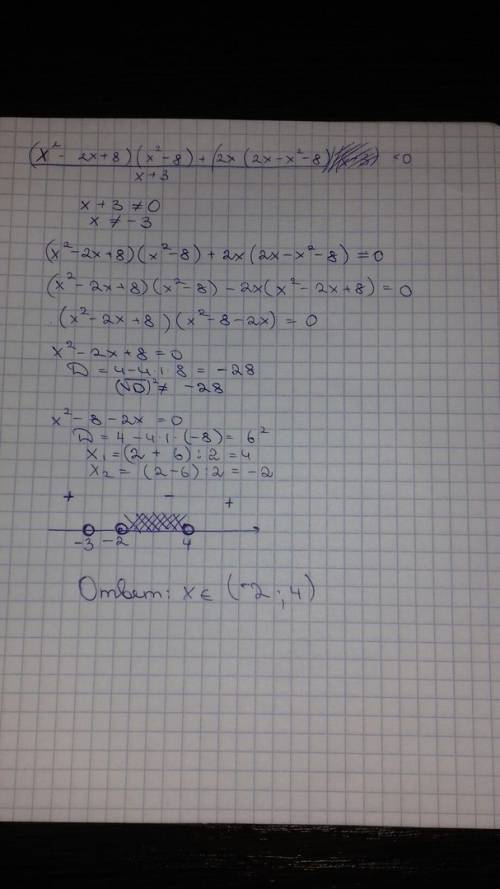 (x² - 2x+8)(x²-8)+(2x(2x-x²-8) <0
x+3
x+3≠0
x≠-3
(x²-2x+8)(x²-8)+2x(2x-x²-8)=0
(x²-2x+8)(x²-8)-2x(x²-2x+8)=0
(x²-2x+8)(x²-8-2x)=0
x²-2x+8=0
D=4-4·1·8=-28
(√D)²≠-28
x²-8-2x=0
D=4-4·1·(-8)=6²
x₁=(2+6):2=4
x₂=(2-6):2=-2
+ - +
-3 -2 4
Ответ: x∈(-2;4)